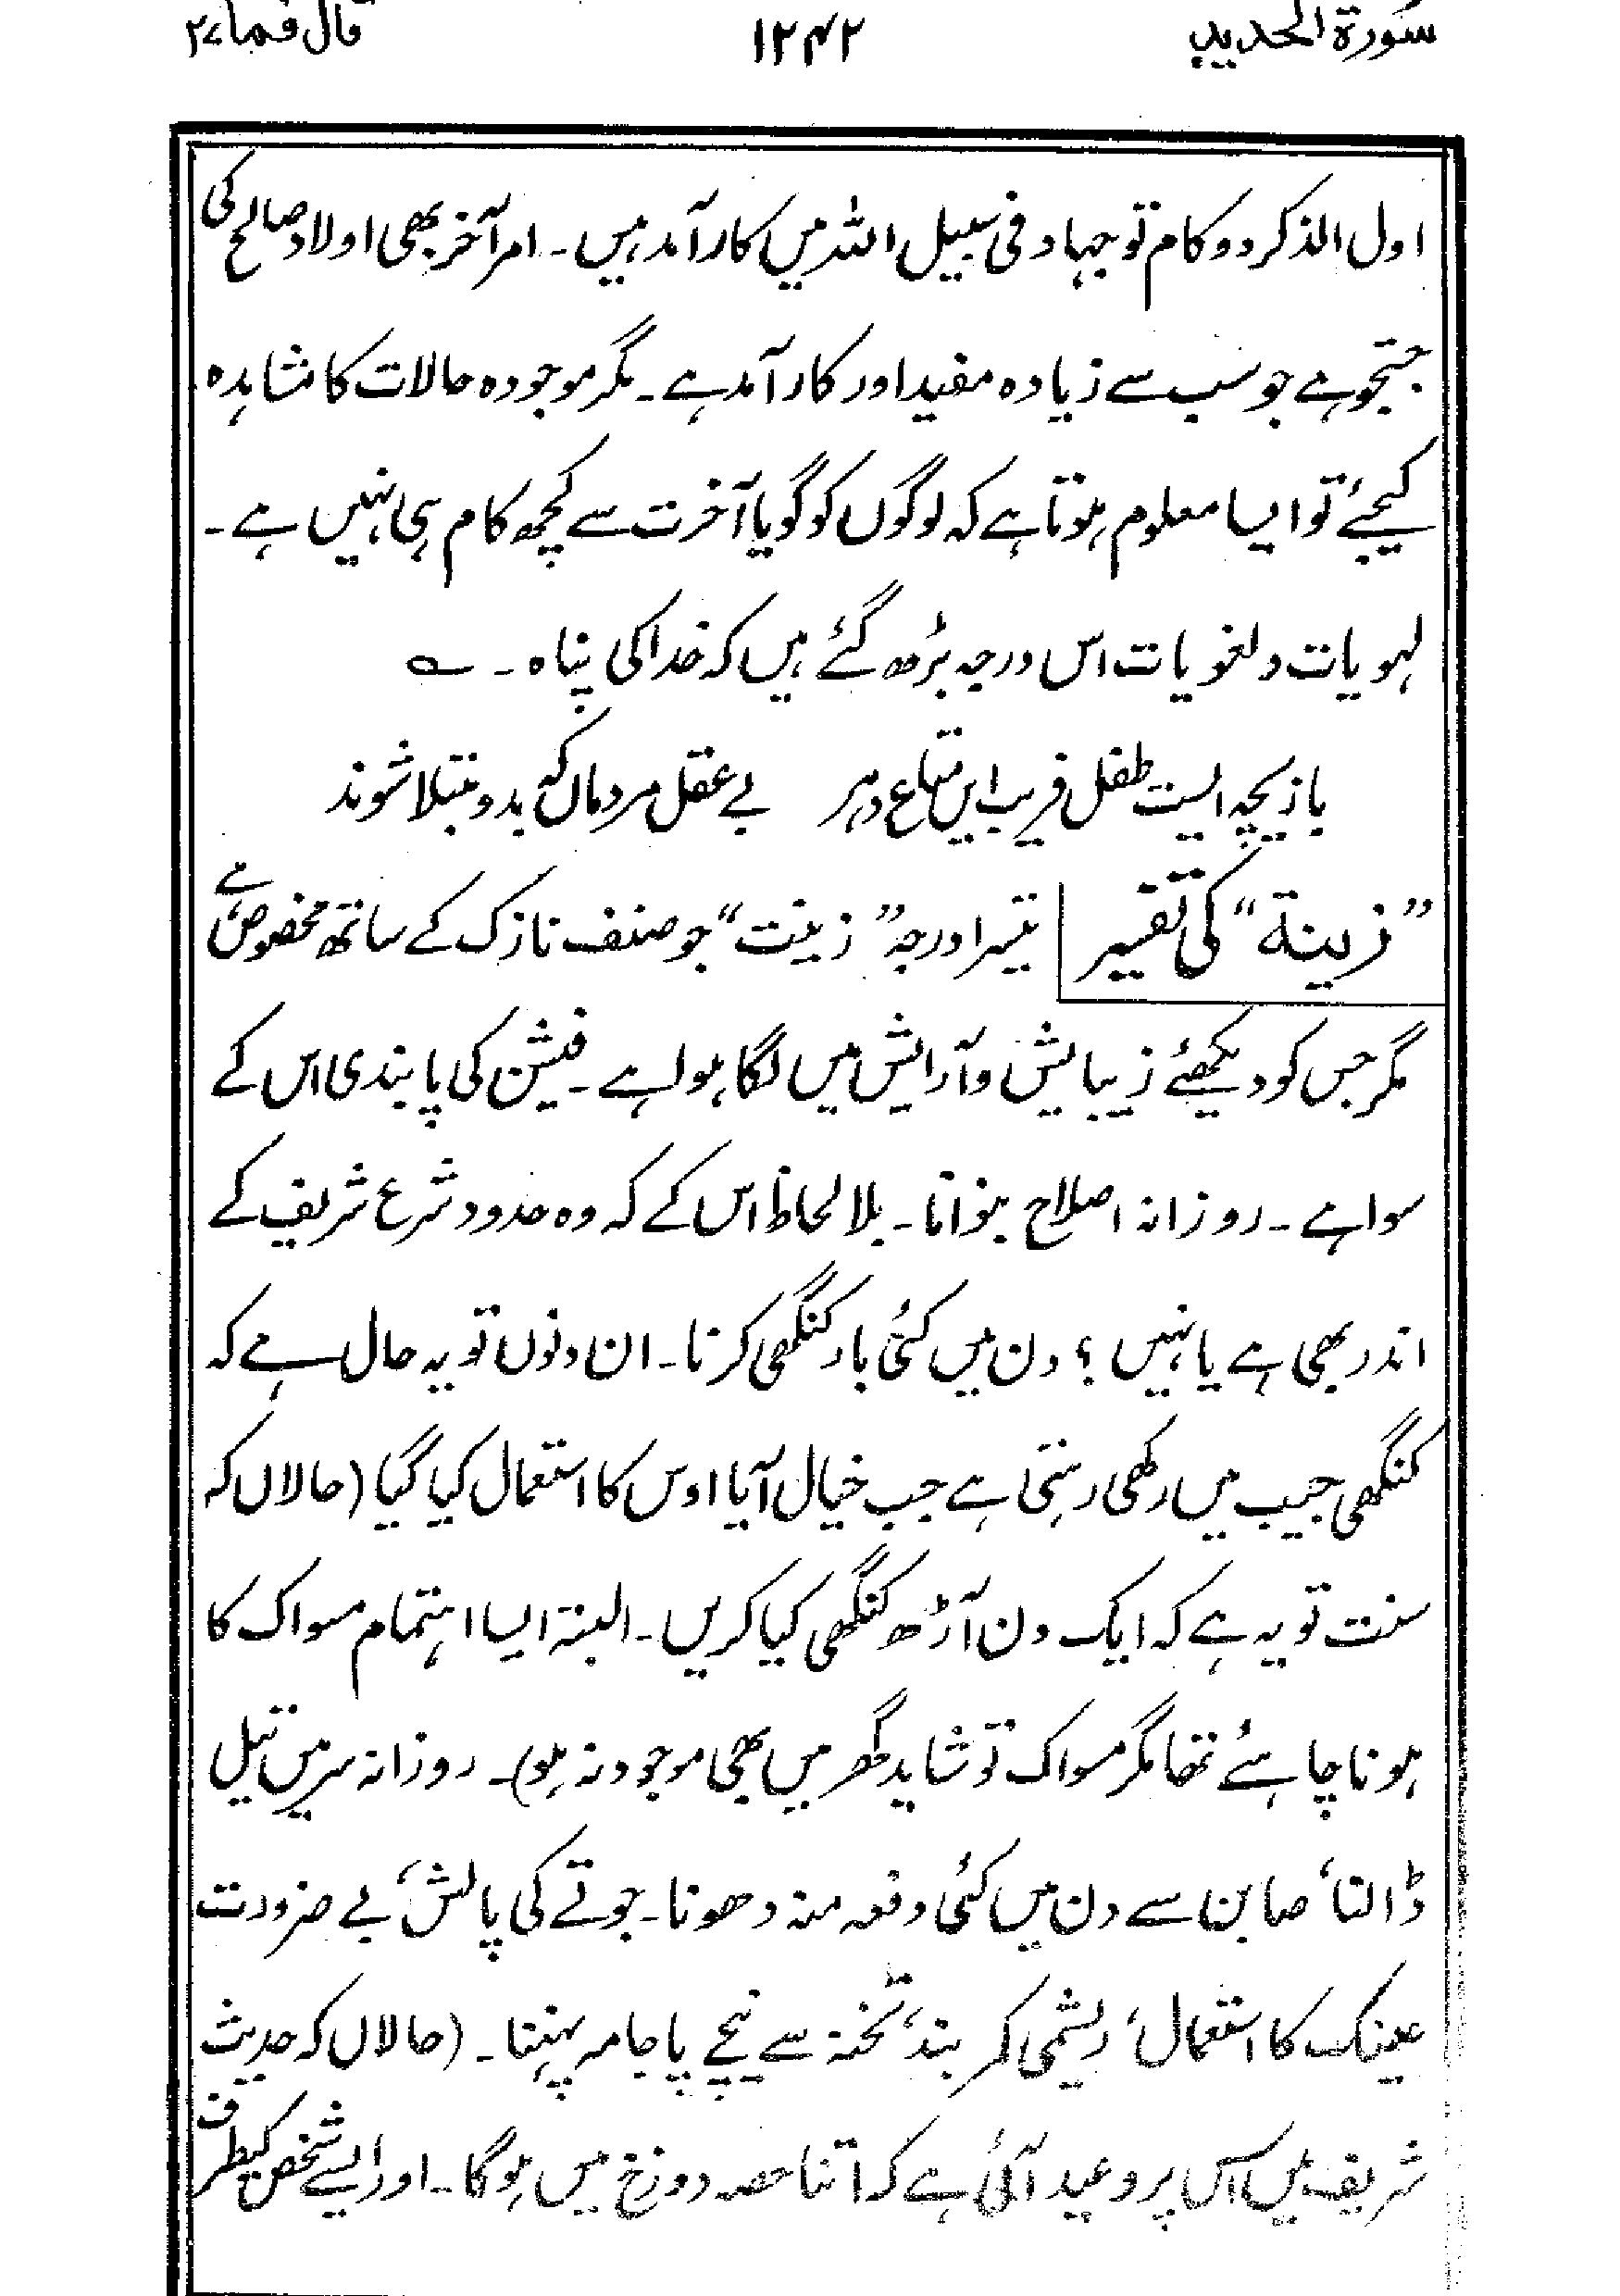 سورۃ الحدید ۱۲۴۲ قال فما ۲۷
اول الذکر دو کام تو جہاد فی سبیل اللہ میں کارآمد ہیں۔ امر آخر بھی اولاد صالح کی
جستجو ہے جو سب سے زیادہ مفید اور کارآمد ہے۔ مگر موجودہ حالات کا مشاہدہ
کیجئے تو ایسا معلوم ہوتا ہے کہ لوگوں کو گویا آخرت سے کچھ کام ہی نہیں ہے۔
لہویات و لغویات اس درجہ بڑھ گئے ہیں کہ خدا کی پناہ۔ ؎
بازیچہ ایست طفل فریب ایں متاع دہر بے عقل مردماں کہ بدو مبتلا شوند
”زینۃ“ کی تفسیر تیسرا درجہ ”زینت“ جو صنف نازک کے ساتھ مخصوص ہے
مگر جس کو دیکھئے زیبایش و آرایش میں لگا ہوا ہے۔ فیشن کی پابندی اس کے
سوا ہے۔ روزانہ اصلاح بنوانا۔ بلا لحاظ اس کے کہ وہ حدود شرع شریف کے
اندر بھی ہے یا نہیں؟ دن میں کئی بار کنگھی کرنا۔ ان دنوں تو یہ حال ہے کہ
کنگھی جیب میں رکھی رہتی ہے جب خیال آیا اوس کا استعمال کیا گیا (حالاں کہ
سنت تو یہ ہے کہ ایک دن آڑھ کنگھی کیا کریں۔ البتہ ایسا اہتمام مسواک کا
ہونا چاہئے تھا مگر مسواک تو شاید گھر میں بھی موجود نہ ہو)۔ روزانہ سر میں تیل
ڈالنا، صابن سے دن میں کئی دفعہ منہ دھونا۔ جوتے کی پالش، بے ضرورت
عینک کا استعمال، ریشمی کمر بند، ٹخنہ سے نیچے پاجامہ پہننا۔ (حالاں کہ حدیث
شریف میں اس پر وعید آئی ہے کہ اتنا حصہ دوزخ میں ہوگا۔ اور ایسے شخص کیطرف